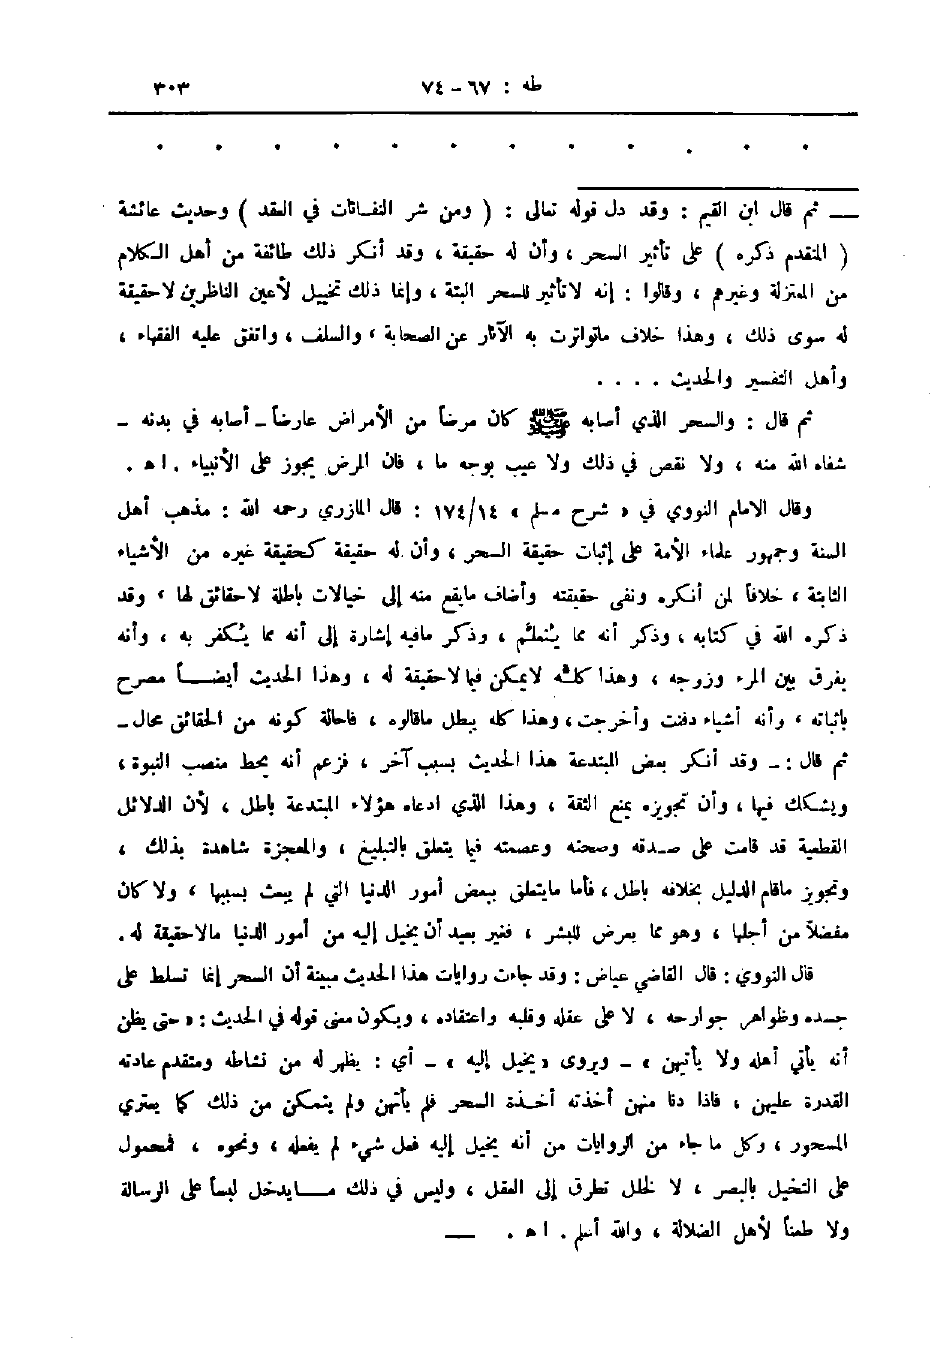 طه : ٦٧ – ٧٤ ٣٠٣
ــ ثم قال ابن القيم : وقد دل قوله تعالى : ( ومن شر النفاثات في العقد ) وحديث عائشة
( المتقدم ذكره ) على تأثير السحر ، وأن له حقيقة ، وقد أنكر ذلك طائفة من أهل الكلام
من المعتزلة وغيرهم ، وقالوا : إنه لا تأثير للسحر البتة ، وإنما ذلك تخييل لأعين الناظرين لا حقيقة
له سوى ذلك ، وهذا خلاف ماتواترت به الآثار عن الصحابة ، والسلف ، واتفق عليه الفقهاء ،
وأهل التفسير والحديث . . . .
ثم قال : والسحر الذي أصابه ﷺ كان مرضاً من الأمراض عارضاً ـ أصابه في بدنه ـ
شفاه الله منه ، ولا نقص في ذلك ولا عيب بوجه ما ، فان المرض يجوز على الأنبياء . ا ه .
وقال الامام النووي في « شرح مسلم » ١٧٤/١٤ : قال المازري رحمه الله : مذهب أهل
السنة وجمهور علماء الأمة على إثبات حقيقة السحر ، وأن له حقيقة كحقيقة غيره من الأشياء
الثابتة ، خلافاً لمن أنكره ونفى حقيقته وأضاف مايقع منه إلى خيالات باطلة لاحقائق لها ، وقد
ذكره الله في كتابه ، وذكر أنه مما يُتعلَّم ، وذكر مافيه إشارة إلى أنه مما يُكفر به ، وأنه
يفرق بين المرء وزوجه ، وهذا كلُّه لايمكن فيما لاحقيقة له ، وهذا الحديث أيضـــاً مصرح
باثباته ، وأنه أشياء دفنت وأخرجت ، وهذا كله يبطل ماقالوه ، فاحالة كونه من الحقائق محال ـ
ثم قال : ـ وقد أنكر بعض المبتدعة هذا الحديث بسبب آخر ، فزعم أنه يحط منصب النبوة ،
ويشكك فيها ، وأن تجويزه يمنع الثقة ، وهذا الذي ادعاه هؤلاء المبتدعة باطل ، لأن الدلائل
القطعية قد قامت على صـدقه وصحته وعصمته فيما يتعلق بالتبليغ ، والمعجزة شاهدة بذلك ،
وتجويز ماقام الدليل بخلافه باطل ، فأما مايتعلق ببعض أمور الدنيا التي لم يبعث بسببها ، ولا كان
مفضلاً من أجلها ، وهو مما يعرض للبشر ، فغير بعيد أن يخيل إليه من أمور الدنيا مالاحقيقة له .
قال النووي : قال القاضي عياض : وقد جاءت روايات هذا الحديث مبينة أن السحر إنما تسلط على
جسده وظواهر جوارحه ، لا على عقله وقلبه واعتقاده ، ويكون معنى قوله في الحديث : « حتى يظن
أنه يأتي أهله ولا يأتيهن » ـ ويروى « يخيل إليه » ـ أي : يظهر له من نشاطه ومتقدم عادته
القدرة عليهن ، فاذا دنا منهن أخذته أخـذة السحر فلم يأتهن ولم يتمكن من ذلك كما يعتري
المسحور ، وكل ما جاء من الروايات من أنه يخيل إليه فعل شيء لم يفعله ، ونحوه ، فمحمول
على التخيل بالبصر ، لا لخلل تطرق إلى العقل ، وليس في ذلك مـــا يدخل لبساً على الرسالة
ولا طعناً لأهل الضلالة ، والله أعلم . ا ه . ــ